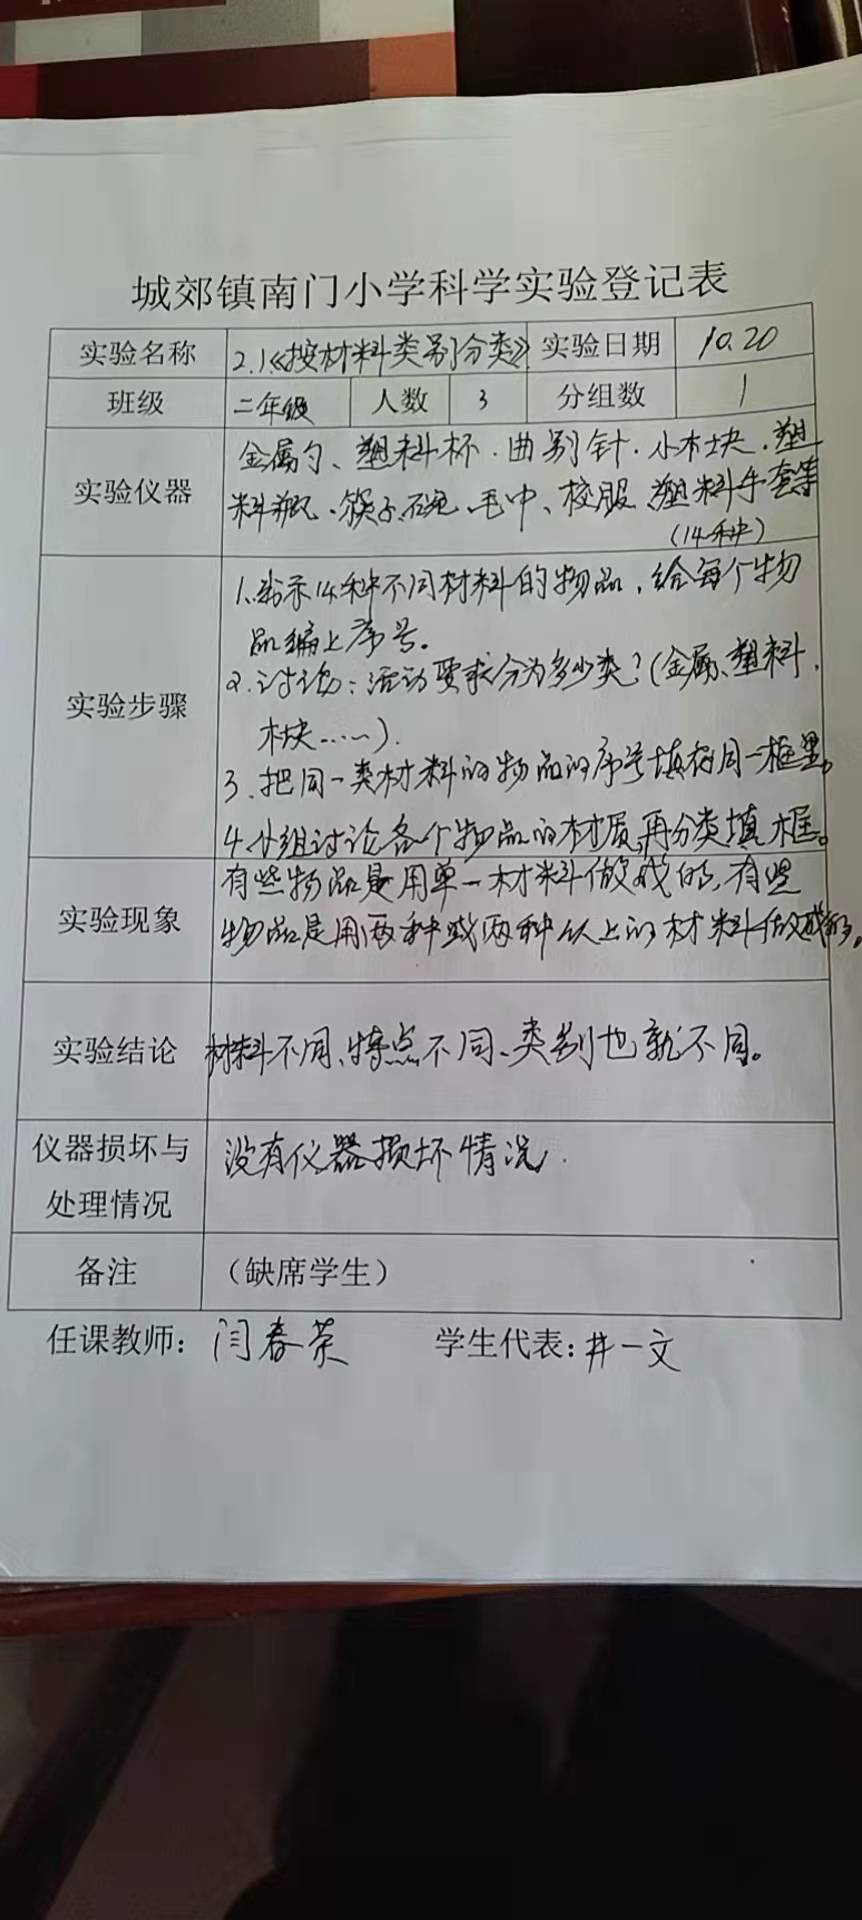 城郊镇南门小学科学实验登记表
实验名称 2.1《按材料类别分类》 实验日期 10.20
班级 二年级 人数 3 分组数 1
实验仪器
金属勺、塑料杯.曲别针.小木块.塑
料瓶.筷子.碗.毛巾、校服.塑料手套等
(14种)
实验步骤
1.出示14种不同材料的物品,给每个物
品编上序号。
2.讨论:活动要求分为多少类?(金属、塑料.
木块……).
3.把同一类材料的物品的序号填在同一框里。
4.小组讨论各个物品的材质,再分类填框。
实验现象
有些物品是用单一材料做成的,有些
物品是用两种或两种以上的材料做成的。
实验结论
材料不同、特点不同、类别也就不同。
仪器损坏与
处理情况
没有仪器损坏情况.
备注 (缺席学生)
任课教师: 闫春荣 学生代表: 井一文